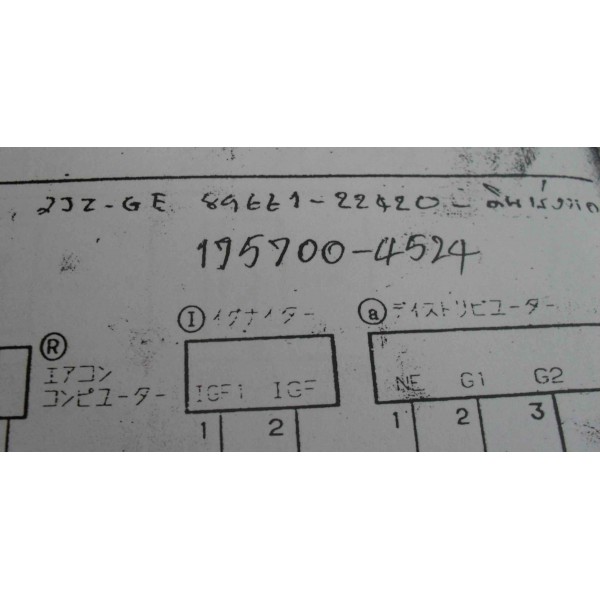 2JZ-GE 89661-22420-
175700-4524
Ⓘ イグナイター
ⓐ ディストリビューター
Ⓡ
エアコン
コンピューター
IGF1 IGF
NE G1 G2
1 2
1 2 3